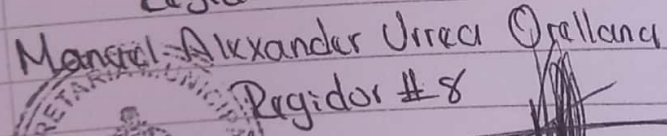 Manuel Alexander Urrea Orellana
Regidor #8